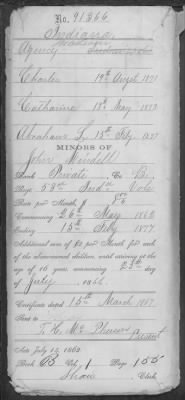 No. 91366
Indiana
Agency
Charles 19th Augst 1871
Catharine 18th May 1873
Abraham L. 15th Feby
MINORS OF
John Mindell
Rank Private Co. B.
Regt 53rd Indi Vols
Rate per Month $8
Commencing 26th May 186
Ending 15th Feby 1877
Additional sum of $2 per Month for each
of the abovenamed children, until arriving at the
age of 16 years, commencing 25th day
of July 1866
Certificate dated 15th March 1867
Sent to
T. H. Mc Pherson
Present
Acts July 14, 1862
Book B Vol. 1 Page 155
Clerk.